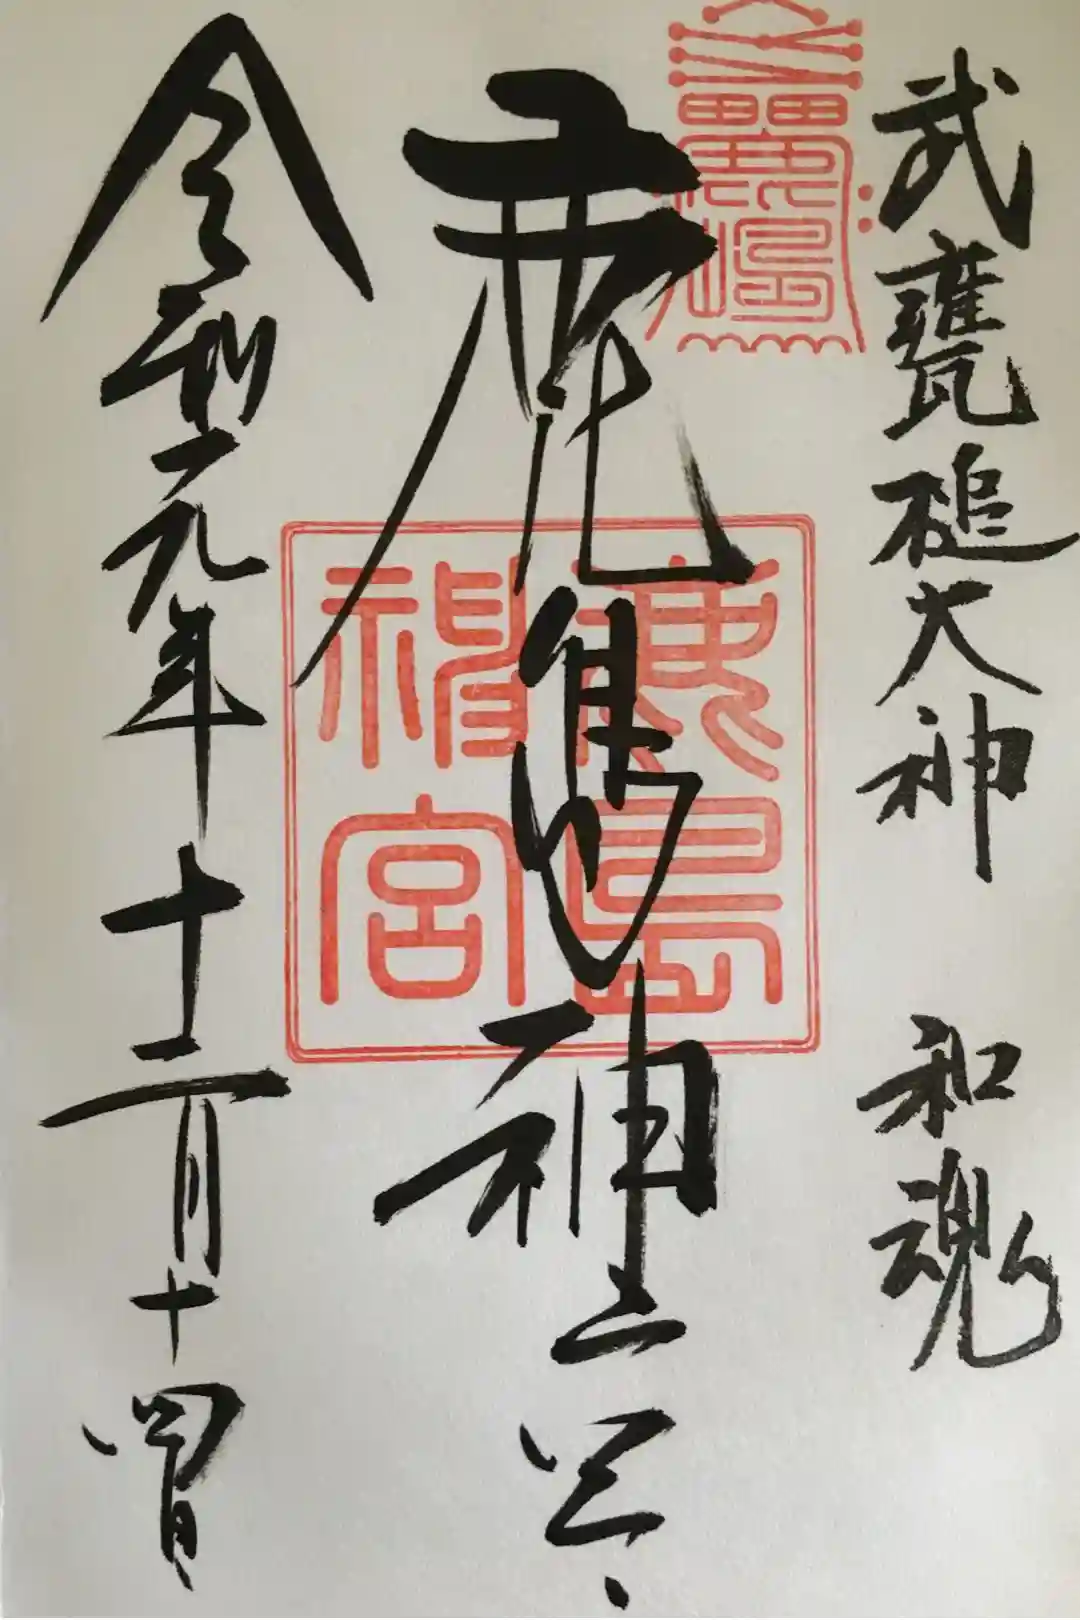 武甕槌大神 和魂
鹿島神宮
鹿島神宮
令和元年十二月十四日